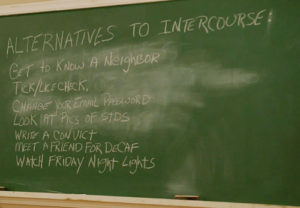 ALTERNATIVES TO INTERCOURSE:
GET TO KNOW A NEIGHBOR
TICK/LICE CHECK
CHANGE YOUR EMAIL PASSWORD
LOOK AT PICS OF STDS
WRITE A CONVICT
MEET A FRIEND FOR DECAF
WATCH FRIDAY NIGHT LIGHTS